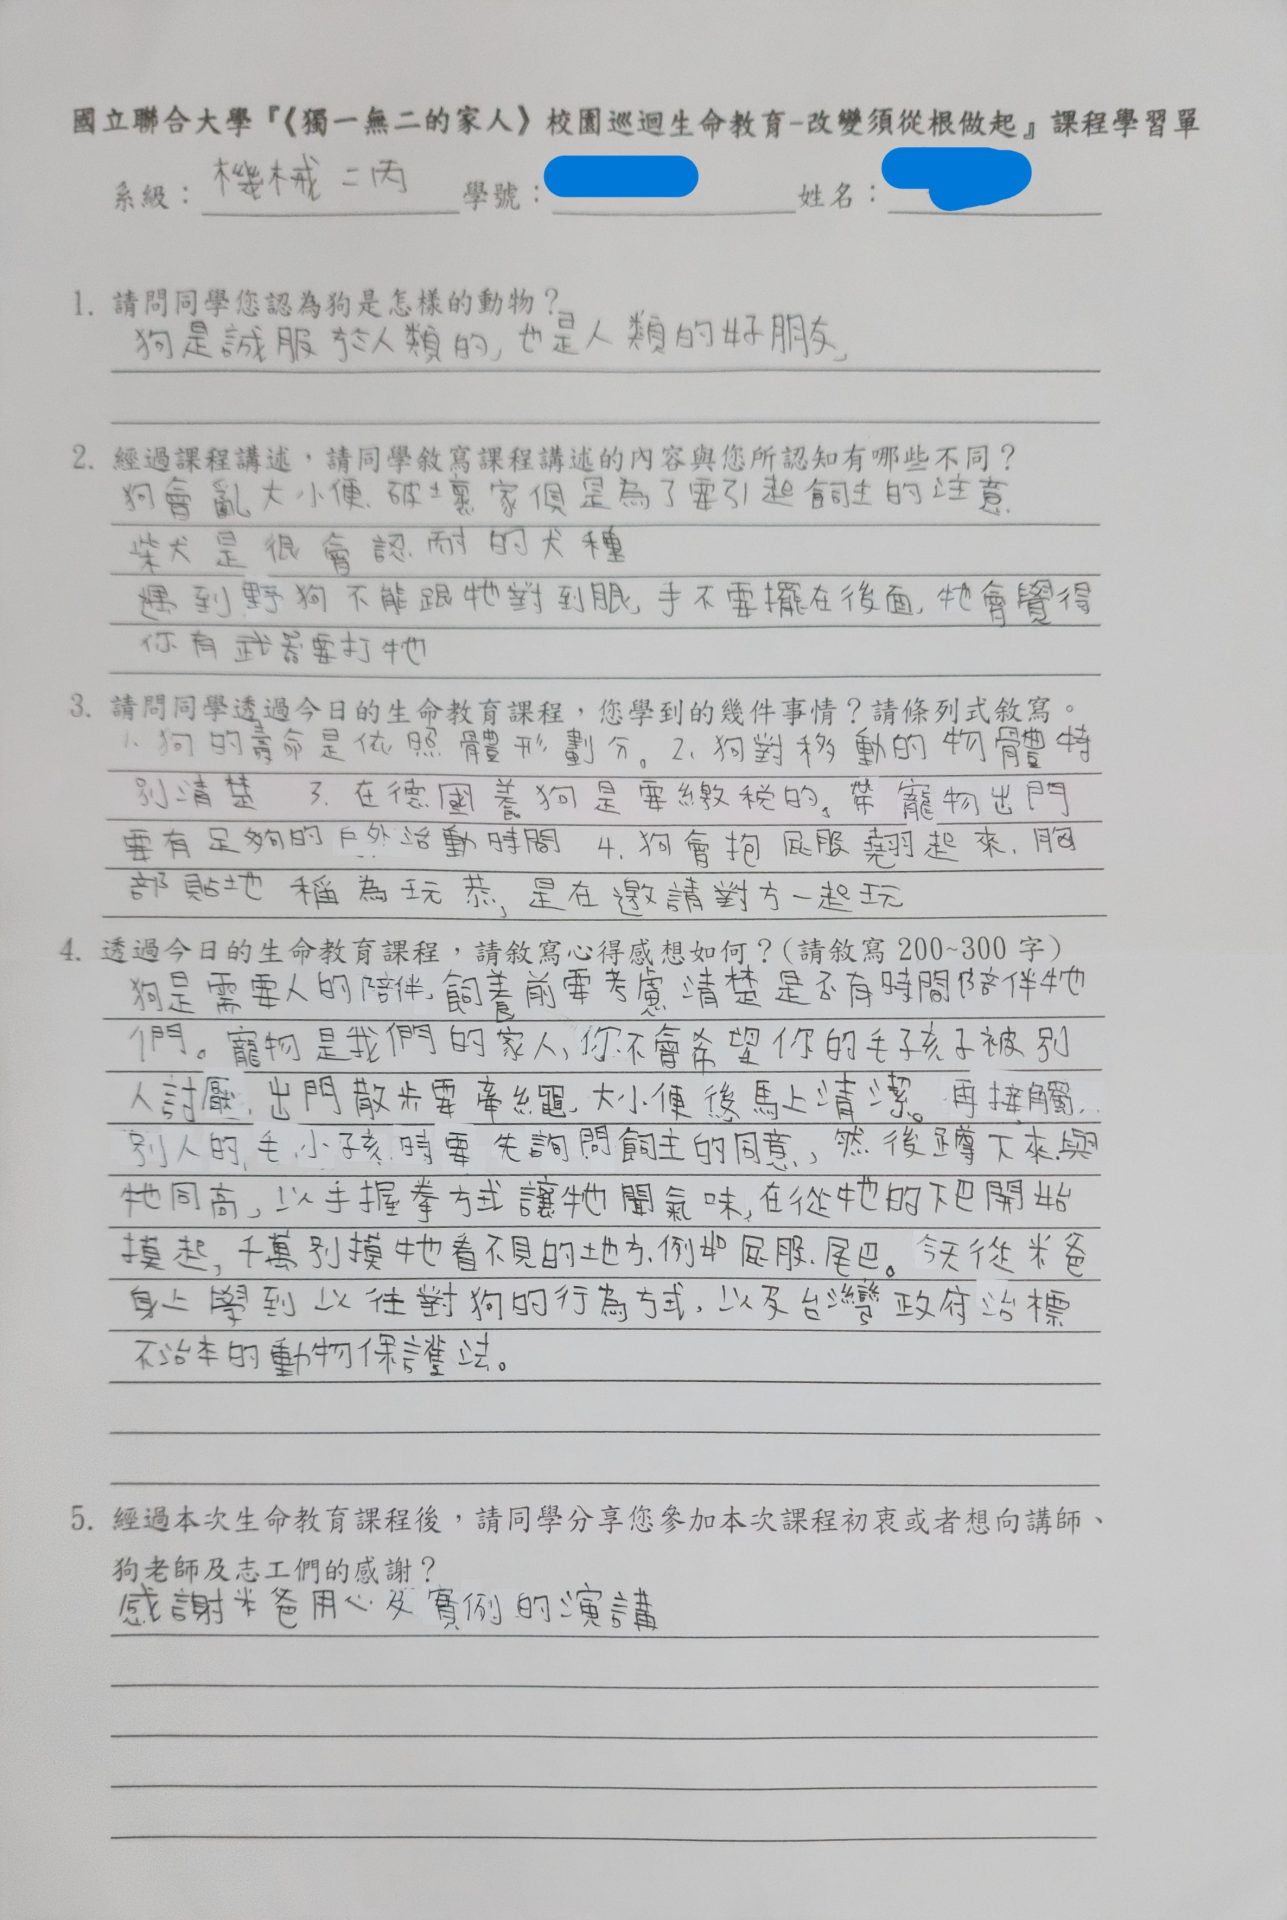 國立聯合大學『《獨一無二的家人》校園巡迴生命教育-改變須從根做起』課程學習單
系級：機械二丙 學號： 姓名：
1. 請問同學您認為狗是怎樣的動物？
狗是誠服於人類的,也是人類的好朋友,
2. 經過課程講述，請同學敘寫課程講述的內容與您所認知有哪些不同？
狗會亂大小便、破壞家俱是為了要引起飼主的注意
柴犬是很會認耐的犬種
遇到野狗不能跟牠對到眼,手不要擺在後面,牠會覺得
你有武器要打牠
3. 請問同學透過今日的生命教育課程，您學到的幾件事情？請條列式敘寫。
1. 狗的壽命是依照體形劃分。2. 狗對移動的物體特
別清楚 3. 在德國養狗是要繳稅的,帶寵物出門
要有足夠的戶外活動時間 4. 狗會抱屁股翹起來,胸
部貼地 稱為玩恭,是在邀請對方一起玩
4. 透過今日的生命教育課程，請敘寫心得感想如何？(請敘寫 200~300 字)
狗是需要人的陪伴,飼養前要考慮清楚是否有時間陪伴牠
們。寵物是我們的家人,你不會希望你的毛孩子被別
人討厭,出門散步要牽繩,大小便後馬上清潔。再接觸
別人的毛小孩時要先詢問飼主的同意,然後蹲下來與
牠同高,以手握拳方式讓牠聞氣味,在從牠的下巴開始
摸起,千萬別摸牠看不見的地方,例如屁股、尾巴。今天從米爸
身上學到以往對狗的行為方式,以及台灣政府治標
不治本的動物保護法。
5. 經過本次生命教育課程後，請同學分享您參加本次課程初衷或者想向講師、
狗老師及志工們的感謝？
感謝米爸用心及實例的演講